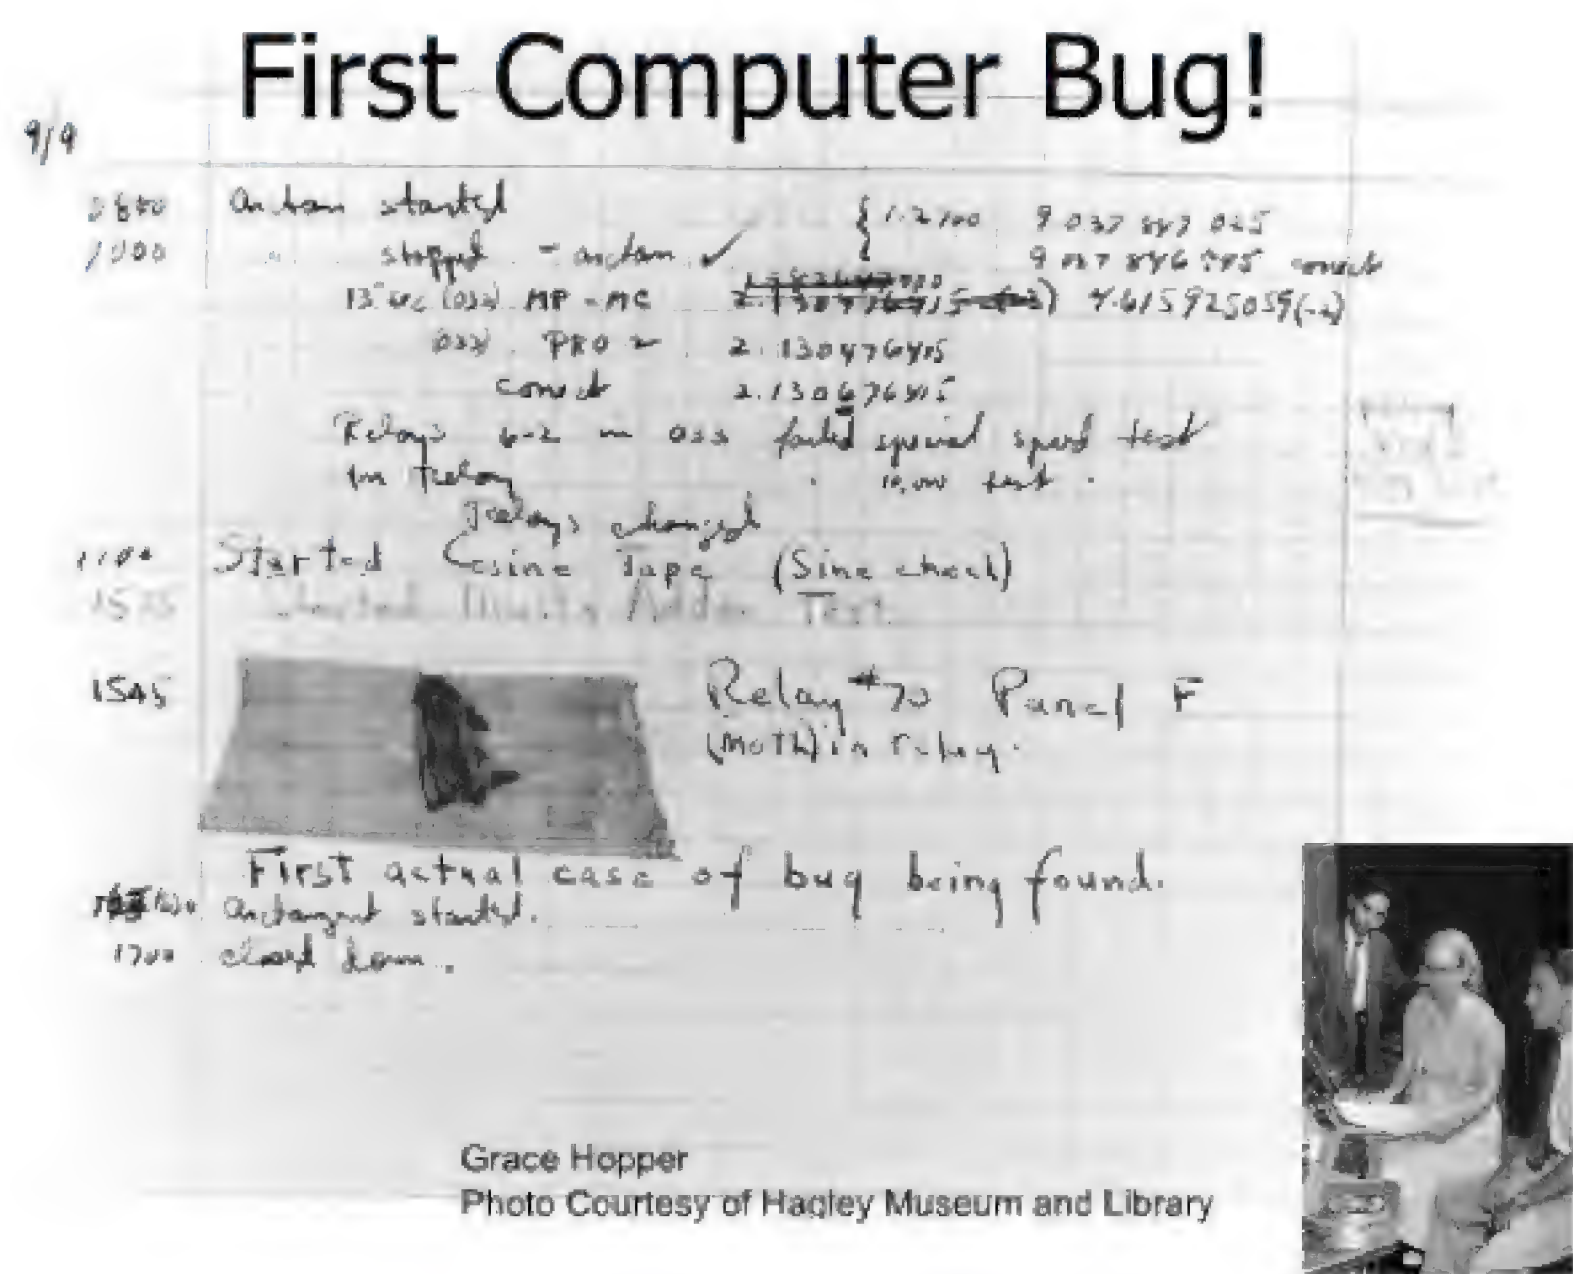 First Computer Bug!
9/9
0800 Antan started
1000 " stopped - antan ✓ { 1.2700 9 037 847 025
9 037 846 995 correct
13" uc (032) MP - MC 4.615925059(-2)
(033) PRO 2 2.130476415
correct 2.130676415
Relays 6-2 in 033 failed special speed test
in relay 10,000 test.
Relays changed
1100 Started Cosine Tape (Sine check)
1525 Started Multi Adder Test.
1545 Relay #70 Panel F
(moth) in relay.
First actual case of bug being found.
1630 Antangent started.
1700 closed down.
Grace Hopper
Photo Courtesy of Hagley Museum and Library